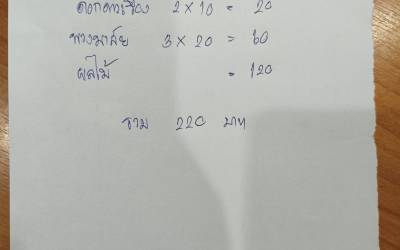 ดอกดาวเรือง 2 × 10 = 20
พวงมาลัย 3 × 20 = 60
ผลไม้ = 120
รวม 220 บาท